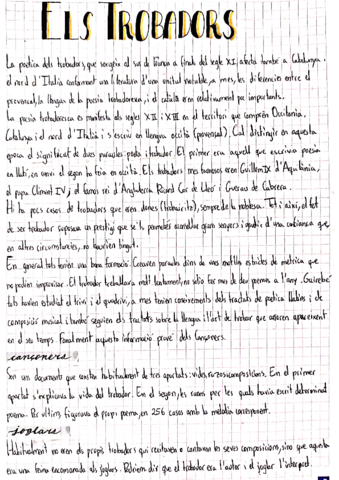 ELS TROBADORS
La poètica dels trobadors, que sorgeix al sud de França a finals del segle XI, afecta també a Catalunya i
el nord d'Itàlia conformant una literatura d'una unitat notable, a més, les diferències entre el
provençal, la llengua de la poesia trobadoresca, i el català eren relativament poc importants.
La poesia trobadoresca es manifesta als segles XII i XIII en el territori que comprèn Occitània,
Catalunya i el nord d'Itàlia i s'escriu en llengua occità (provençal). Cal distingir en aquesta
època el significat de dues paraules: poeta i trobador. El primer era aquell que escrivia poesia
en llatí, en canvi el segon ho feia en occità. Els trobadors més famosos eren Guillem IX d'Aquitània,
el papa Climent IV, el famós rei d'Anglaterra Ricard Cor de Lleó i Guerau de Cabrera.
Hi ha pocs casos de trobadors que eren dones (trobairitz), sempre de la noblesa. Tot i així, el fet
de ser trobador suposava un prestigi que se'ls permetés aconsellar grans senyors i gaudir d'una confiança que
en altres circumstàncies, no haurien tingut.
En general tots tenien una bona formació. Coneixen paraules dins de uns motlles estròfics de mètrica que
no podien improvisar. El trobador treballava molt lentament, no solia fer més de deu poemes a l'any. Gairebé
tots havien estudiat el trivi i el quadrivi, a més tenien coneixements dels tractats de poètica llatins i de
composició musical i també seguien els tractats sobre la llengua i l'art de trobar que anaven apareixent
en el seu temps. Finalment aquesta informació prové dels Cançoners.
cançoners
Són uns documents que consten habitualment de tres apartats: vides, razos i composicions. En el primer
apartat s'explicava la vida del trobador. En el segon, les raons per les quals havia escrit determinat
poema. Per últim, figurava el propi poema, en 256 casos amb la melodia corresponent.
joglars
Habitualment no eren els propis trobadors qui recitaven o cantaven les seves composicions, sino que aquesta
era una feina encomanada als joglars. Podríem dir que el trobador era l'autor i el joglar l'intèrpret.